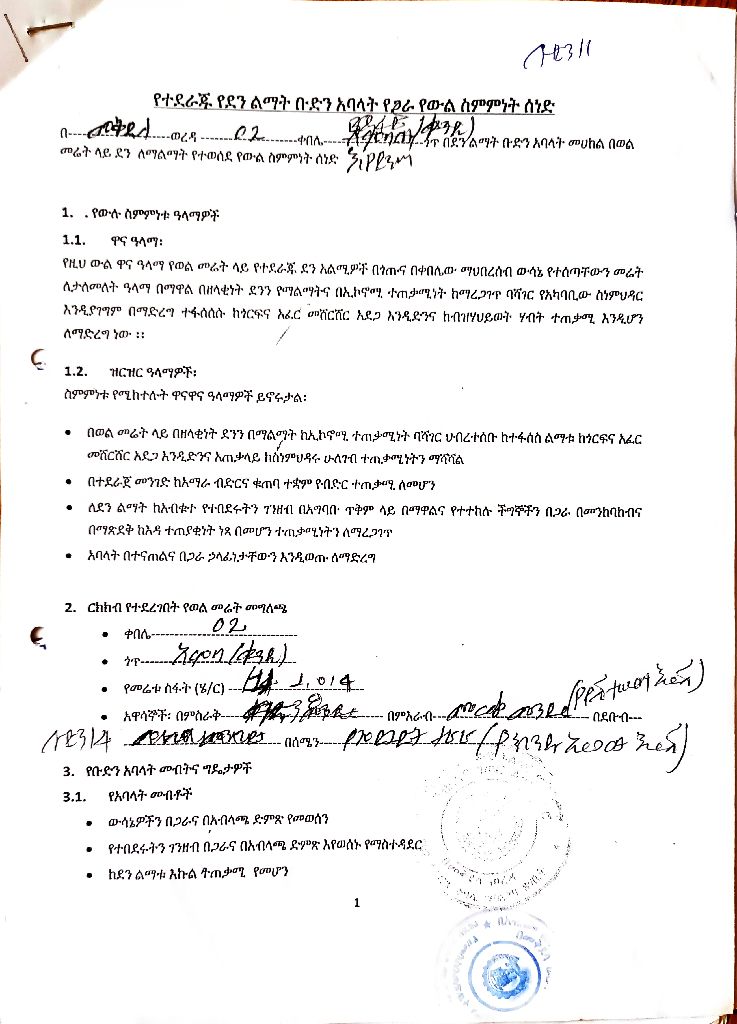 የተደራጁ የደን ልማት ቡድን አባላት የጋራ የውል ስምምነት ሰነድ
በ---- ወረዳ ---------02---------ቀበሌ---- ጎጥ በደን ልማት ቡድን አባላት መሀከል በወል
መሬት ላይ ደን ለማልማት የተወሰደ የውል ስምምነት ሰነድ
1. . የውሉ ስምምነቱ ዓላማዎች
1.1. ዋና ዓላማ፡
የዚህ ውል ዋና ዓላማ የወል መሬት ላይ የተደራጁ ደን አልሚዎች በጎጡና በቀበሌው ማህበረሰብ ውሳኔ የተሰጣቸውን መሬት
ለታለመለት ዓላማ በማዋል በዘላቂነት ደንን የማልማትና በኢኮኖሚ ተጠቃሚነት ከማረጋገጥ ባሻገር የአካባቢው ስነምህዳር
እንዲያገግም በማድረግ ተፋሰሰሱ ከጎርፍና አፈር መሸርሸር አደጋ እንዲድንና ከብዝሃህይወት ሃብት ተጠቃሚ እንዲሆን
ለማድረግ ነው ፡፡
1.2. ዝርዝር ዓላማዎች፡
ስምምነቱ የሚከተሉት ዋናዋና ዓላማዎች ይኖሩታል፡
• በወል መሬት ላይ በዘላቂነት ደንን በማልማት ከኢኮኖሚ ተጠቃሚነት ባሻገር ህብረተሰቡ ከተፋሰስ ልማቱ ከጎርፍና አፈር
መሸርሸር አደጋ እንዲድንና አጠቃላይ ከስነምህዳሩ ሁለገብ ተጠቃሚነትን ማሻሻል
• በተደራጀ መንገድ ከአማራ ብድርና ቁጠባ ተቋም የብድር ተጠቃሚ ለመሆን
• ለደን ልማት ከአብቁተ የተበደሩትን ገንዘብ በአግባቡ ጥቅም ላይ በማዋልና የተተከሉ ችግኞችን በጋራ በመንከባከብና
በማጽደቅ ከእዳ ተጠያቂነት ነጻ በመሆን ተጠቃሚነትን ለማረጋገጥ
• አባላት በተናጠልና በጋራ ኃላፊነታቸውን እንዲወጡ ለማድረግ
2. ርክክብ የተደረገበት የወል መሬት መግለጫ
• ቀበሌ------------02---------------
• ጎጥ----
• የመሬቱ ስፋት (ሄ/ር) ---- 1.014
• አዋሳኞች፡ በምስራቅ---- በምእራብ---- በደቡብ---
---- በሰሜን----
3. የቡድን አባላት መብትና ግዴታዎች
3.1. የአባላት መብቶች
• ውሳኔዎችን በጋራና በአብላጫ ድምጽ የመወሰን
• የተበደሩትን ገንዘብ በጋራና በአብላጫ ድምጽ እየወሰኑ የማስተዳደር
• ከደን ልማቱ እኩል ተጠቃሚ የመሆን
1